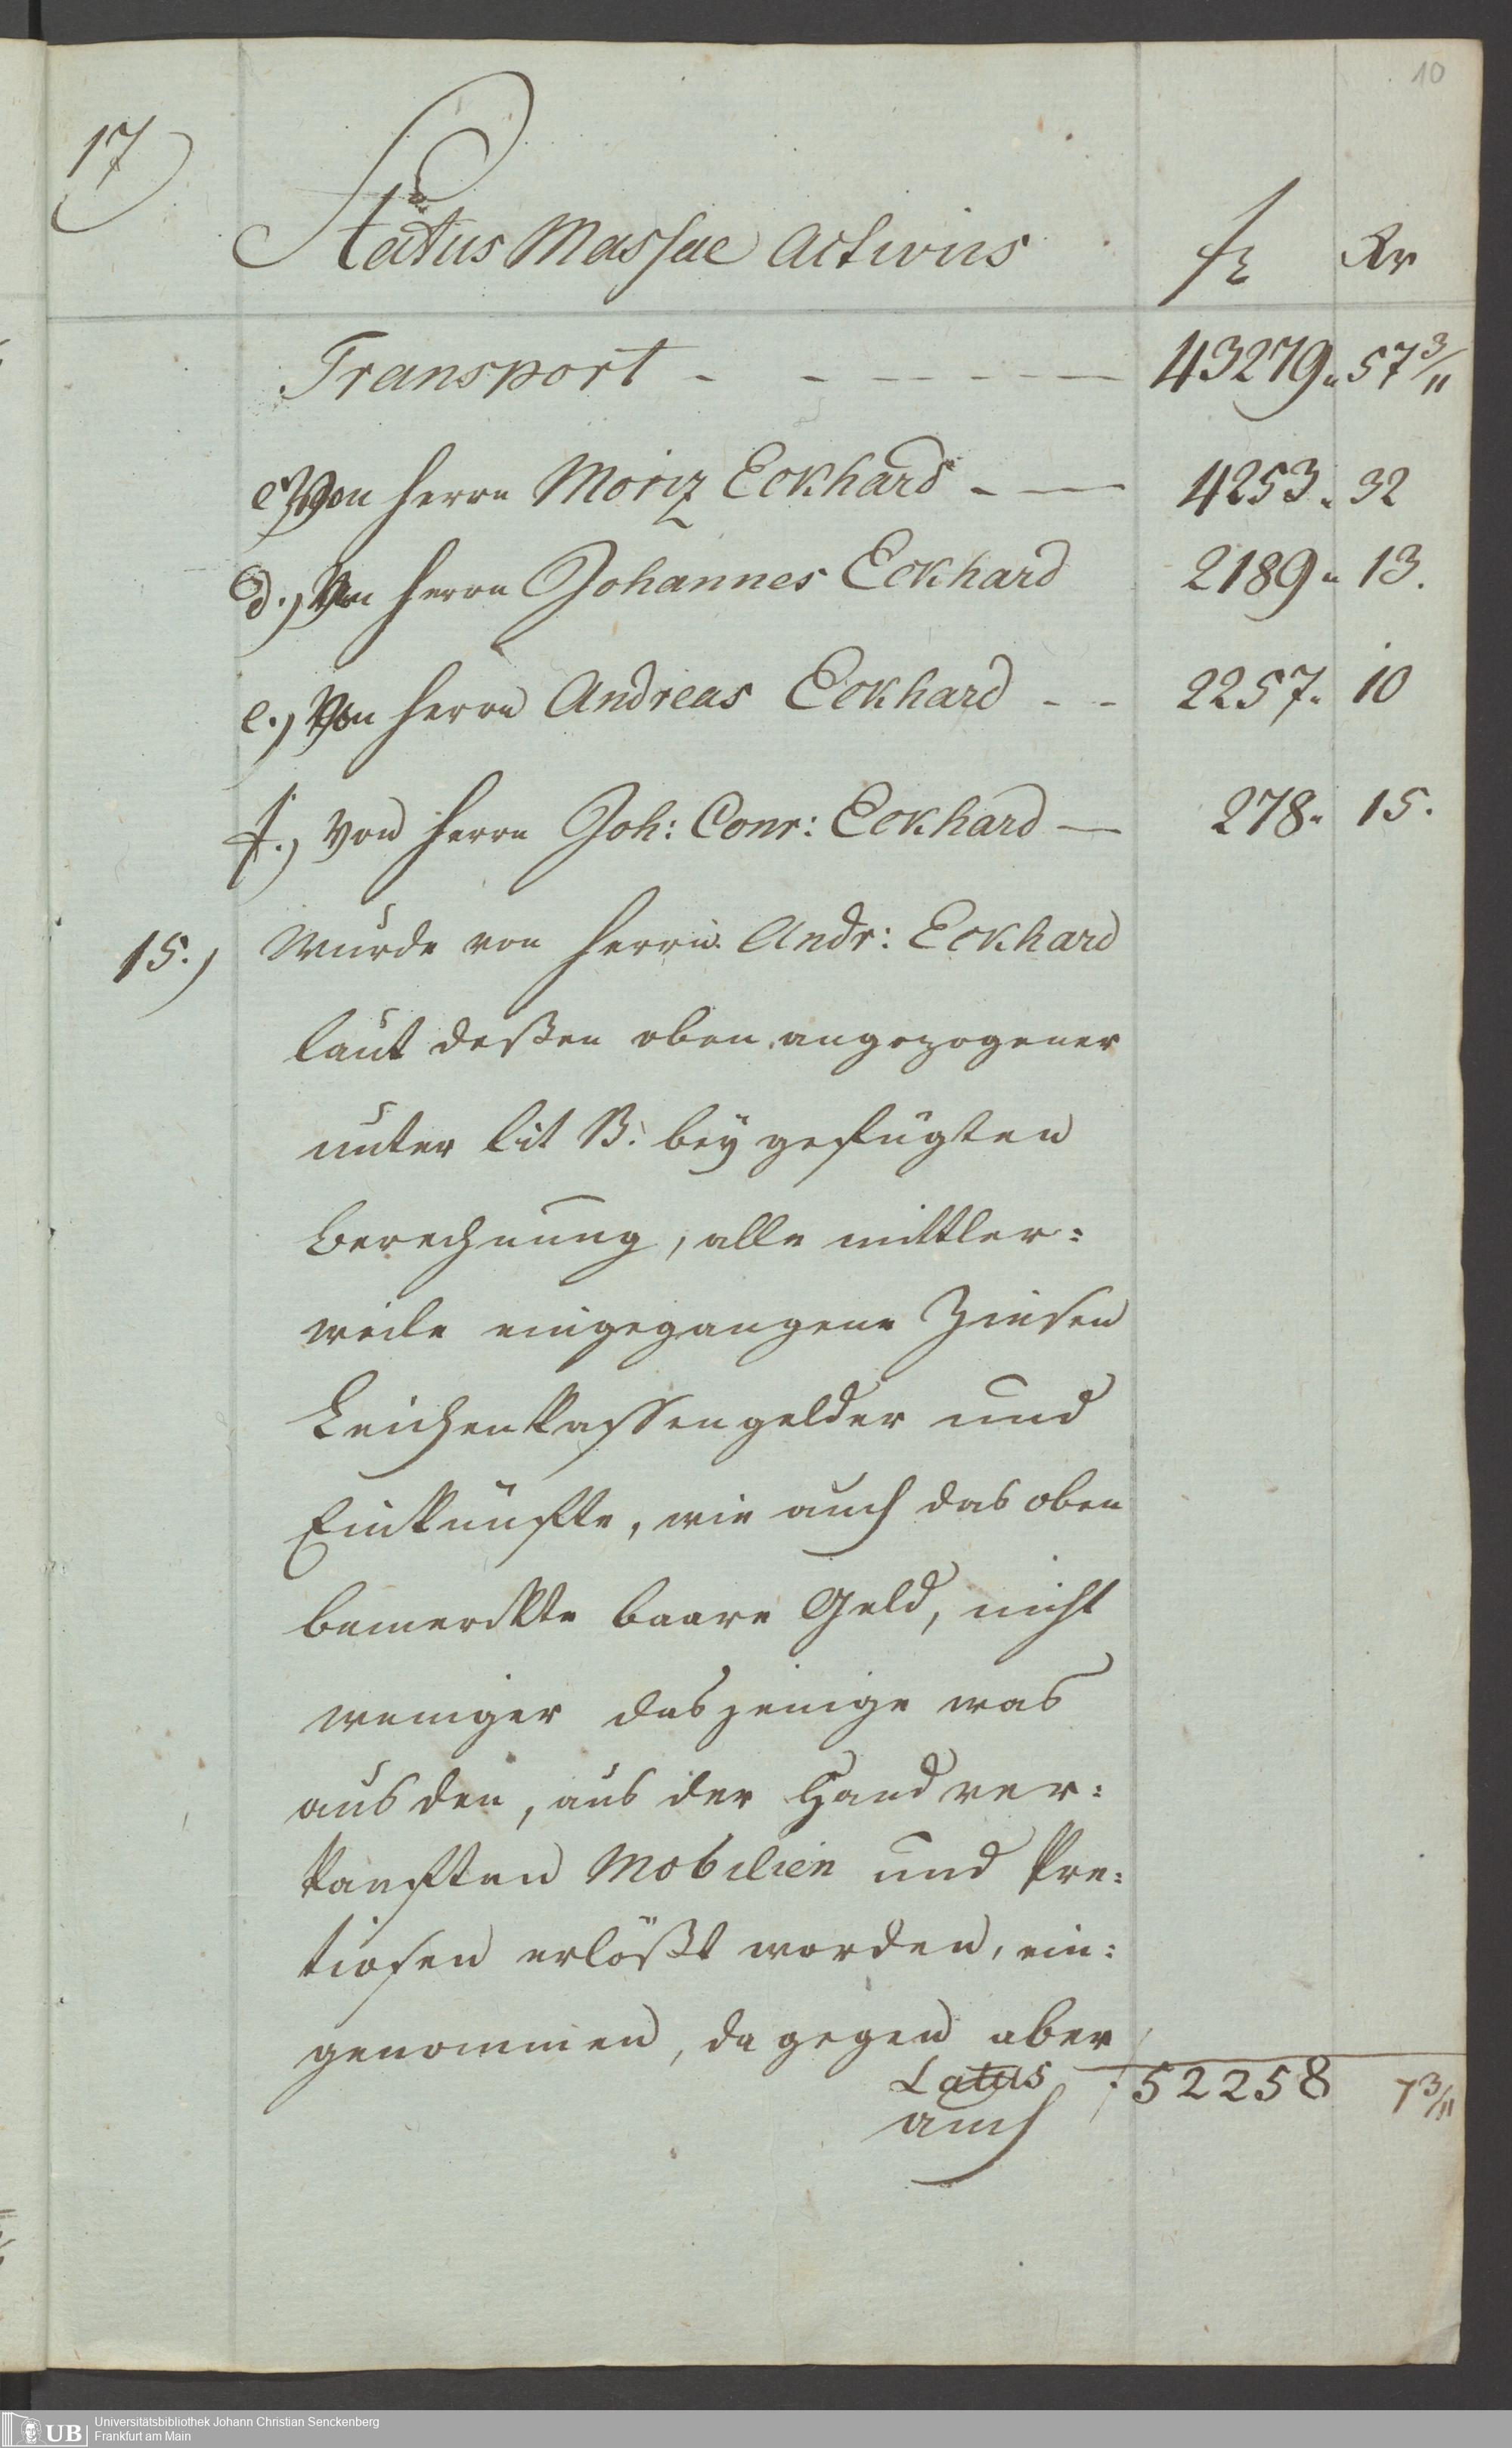 10
17
Status Massae Activus fl Kr
Transport - - - - - - 43279. 57 3/11
c.) Von Herrn Moriz Eckhard - - 4253. 32
d.) Von Herrn Johannes Eckhard 2189. 13.
e.) Von Herrn Andreas Eckhard - - 2257. 10
f.) Von Herrn Joh: Conr: Eckhard - 278. 15.
15.) Wurde von Herrn Andr: Eckhard
laut deßen oben angezogener
unter Lit B. beÿgefügten
Berechnung, alle mittler:
weile eingegangene Zinsen
Leichenkassengelder und
Einkünfte, wie auch das oben
bemerckte baare Geld, nicht
weniger dasjenige was
aus den, aus der Hand ver:
kauften Mobilien und Pre:
tiosen erlößt worden, ein:
genommen, da gegen aber
Latus 52258 7 3/11
auch
UB Universitätsbibliothek Johann Christian Senckenberg
Frankfurt am Main